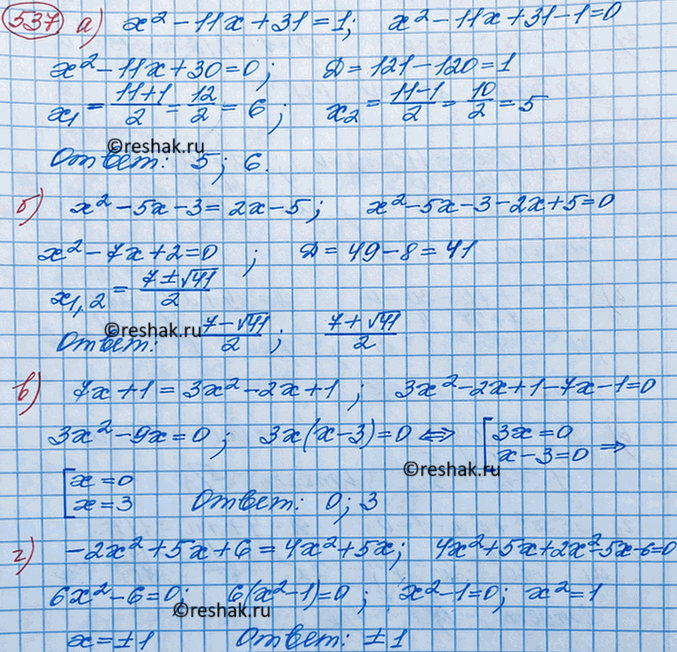 537 а) x² - 11x + 31 = 1; x² - 11x + 31 - 1 = 0
x² - 11x + 30 = 0; Д = 121 - 120 = 1
x₁ = (11+1)/2 = 12/2 = 6; x₂ = (11-1)/2 = 10/2 = 5
©reshak.ru
Ответ: 5; 6.
б) x² - 5x - 3 = 2x - 5; x² - 5x - 3 - 2x + 5 = 0
x² - 7x + 2 = 0; Д = 49 - 8 = 41
x₁,₂ = (7 ± √41)/2
©reshak.ru
Ответ: (7 - √41)/2; (7 + √41)/2
в) 7x + 1 = 3x² - 2x + 1; 3x² - 2x + 1 - 7x - 1 = 0
3x² - 9x = 0; 3x(x - 3) = 0 ⇔ [3x = 0
x - 3 = 0 ⇒
©reshak.ru
[x = 0
x = 3 Ответ: 0; 3
г) -2x² + 5x + 6 = 4x² + 5x; 4x² + 5x + 2x² - 5x - 6 = 0
6x² - 6 = 0; 6(x² - 1) = 0; x² - 1 = 0; x² = 1
©reshak.ru
x = ±1 Ответ: ±1